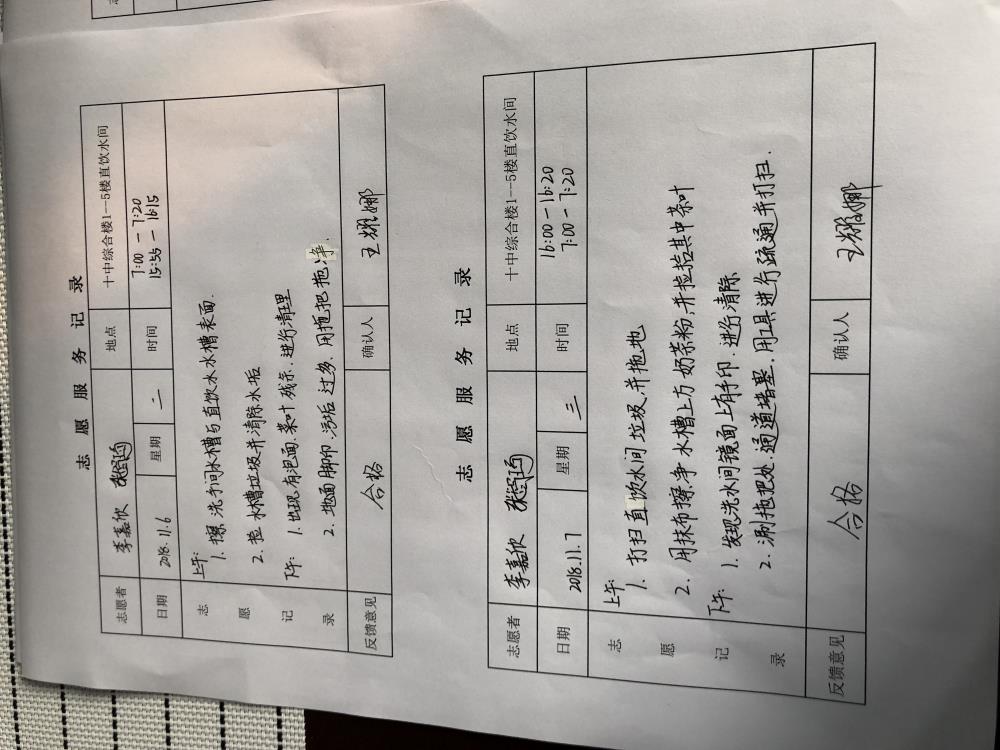 志愿服务记录
志愿者 李嘉欣 地点 十中综合楼1--5楼直饮水间
日期 2018.11.6 星期 二 时间 7:00-7:20
15:55-16:15
志愿记录
上午:
1. 擦洗手间水槽与直饮水水槽表面.
2. 捡水槽垃圾并清除水垢
下午: 1. 出现有泡面.菜叶残余.进行清理
2. 地面脚印.污垢过多.用拖把拖净.
反馈意见 合格 确认人 王娜
志愿服务记录
志愿者 李嘉欣 地点 十中综合楼1--5楼直饮水间
日期 2018.11.7 星期 三 时间 16:00-16:20
7:00-7:20
志愿记录
上午:
1. 打扫直饮水间垃圾.并拖地
2. 用抹布擦净水槽上方奶茶粉.并捡拾其中茶叶
下午: 1. 发现洗水间镜面上有手印.进行清除
2. 涮拖把处.通道堵塞.用工具进行疏通并打扫.
反馈意见 合格 确认人 王娜